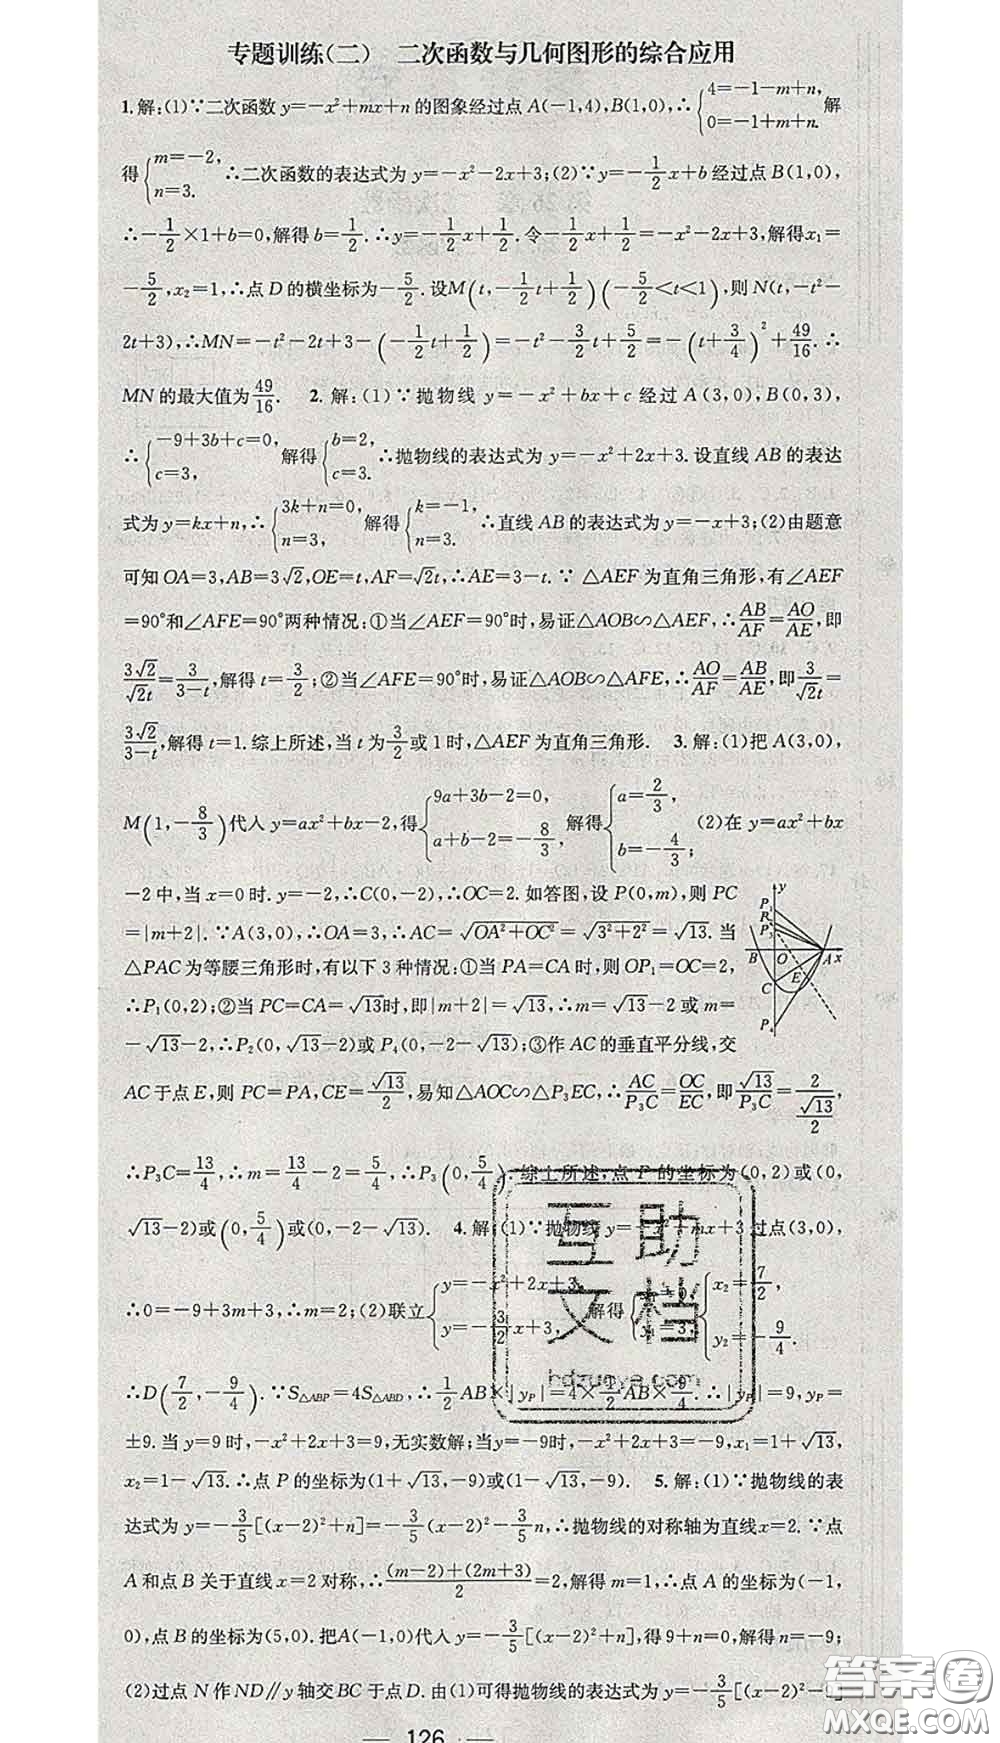 专题训练(二) 二次函数与几何图形的综合应用
1.解:(1)∵二次函数 y=-x²+mx+n 的图象经过点 A(-1,4),B(1,0),∴{4=-1-m+n, 0=-1+m+n. 解
得{m=-2, n=3. ∴二次函数的表达式为 y=-x²-2x+3;(2)∵y=-1/2x+b 经过点 B(1,0),
∴-1/2×1+b=0,解得b=1/2.∴y=-1/2x+1/2.令-1/2x+1/2=-x²-2x+3,解得x₁=
-5/2,x₂=1,∴点 D 的横坐标为-5/2.设M(t,-1/2t+1/2)(-5/2<t<1),则 N(t,-t²-
2t+3),∴MN=-t²-2t+3-(-1/2t+1/2)=-t²-3/2t+5/2=-(t+3/4)²+49/16.∴
MN 的最大值为49/16. 2.解:(1)∵抛物线 y=-x²+bx+c 经过 A(3,0),B(0,3),
∴{-9+3b+c=0, c=3, 解得{b=2, c=3. ∴抛物线的表达式为 y=-x²+2x+3.设直线 AB 的表达
式为 y=kx+n,∴{3k+n=0, n=3, 解得{k=-1, n=3. ∴直线 AB 的表达式为 y=-x+3;(2)由题意
可知 OA=3,AB=3√2,OE=t,AF=√2t,∴AE=3-t.∵△AEF 为直角三角形,有∠AEF
=90°和∠AFE=90°两种情况:①当∠AEF=90°时,易证△AOB∽△AEF,∴AB/AF=AO/AE,即
3√2/√2t=3/3-t,解得 t=3/2;②当∠AFE=90°时,易证△AOB∽△AFE,∴AO/AF=AB/AE,即3/√2t=
3√2/3-t,解得 t=1.综上所述,当 t 为3/2或 1 时,△AEF 为直角三角形. 3.解:(1)把 A(3,0),
M(1,-8/3)代入 y=ax²+bx-2,得{9a+3b-2=0, a+b-2=-8/3, 解得{a=2/3, b=-4/3; (2)在 y=ax²+bx
-2 中,当 x=0 时.y=-2,∴C(0,-2),∴OC=2.如答图,设 P(0,m),则 PC
=|m+2|.∵A(3,0),∴OA=3,∴AC=√OA²+OC²=√3²+2²=√13.当
△PAC 为等腰三角形时,有以下 3 种情况:①当 PA=CA 时,则 OP₁=OC=2,
∴P₁(0,2);②当 PC=CA=√13时,即|m+2|=√13,∴m=√13-2 或 m=
-√13-2,∴P₂(0,√13-2)或 P₄(0,-2-√13);③作 AC 的垂直平分线,交
AC 于点 E,则 PC=PA,CE=√13/2,易知△AOC∽△P₃EC,∴AC/P₃C=OC/EC,即√13/P₃C=2/(√13/2),
∴P₃C=13/4,∴m=13/4-2=5/4,∴P₃(0,5/4).综上所述,点 P 的坐标为(0,2)或(0,
√13-2)或(0,5/4)或(0,-2-√13). 4.解:(1)∵抛物线 y=-x²+mx+3 过点(3,0),
∴0=-9+3m+3,∴m=2;(2)联立{y=-x²+2x+3, y=-3/2x+3, 解得 {x₂=7/2, y₂=-9/4.
∴D(7/2,-9/4).∵S△ABP=4S△ABD,∴1/2AB×|yP|=4×1/2AB×9/4.∴|yP|=9,yP=
±9.当 y=9 时,-x²+2x+3=9,无实数解;当y=-9时,-x²+2x+3=-9,x₁=1+√13,
x₂=1-√13.∴点 P 的坐标为(1+√13,-9)或(1-√13,-9). 5.解:(1)∵抛物线的表
达式为 y=-3/5[(x-2)²+n]=-3/5(x-2)²-3/5n,∴抛物线的对称轴为直线x=2.∵点
A 和点 B 关于直线 x=2 对称,∴(m-2)+(2m+3)/2=2,解得 m=1,∴点 A 的坐标为(-1,
0),点 B 的坐标为(5,0).把A(-1,0)代入 y=-3/5[(x-2)²+n],得 9+n=0,解得 n=-9;
(2)过点 N 作ND∥y 轴交BC 于点D.由(1)可得抛物线的表达式为 y=-3/5[(x-2)²-9]
y
P₁
P₃
B
O
A
x
C
E
P₄
互助
文档
hdzuoye.com
答案卷
MXQE.COM
126